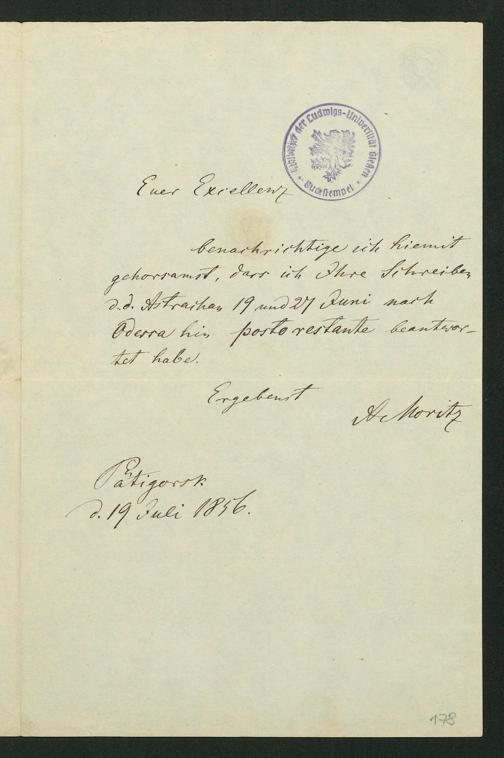 Bibliothek der Ludwigs-Universität Gießen
Euer Excellenz
benachrichtige ich hiemit
gehorsamst, dass ich Ihre Schreiben
d.d. Astrachan 19 und 27 Juni nach
Odessa hin posto restante beantwor-
tet habe.
Ergebenst
A Moritz
Pätigorsk
d. 19 Juli 1856.
178